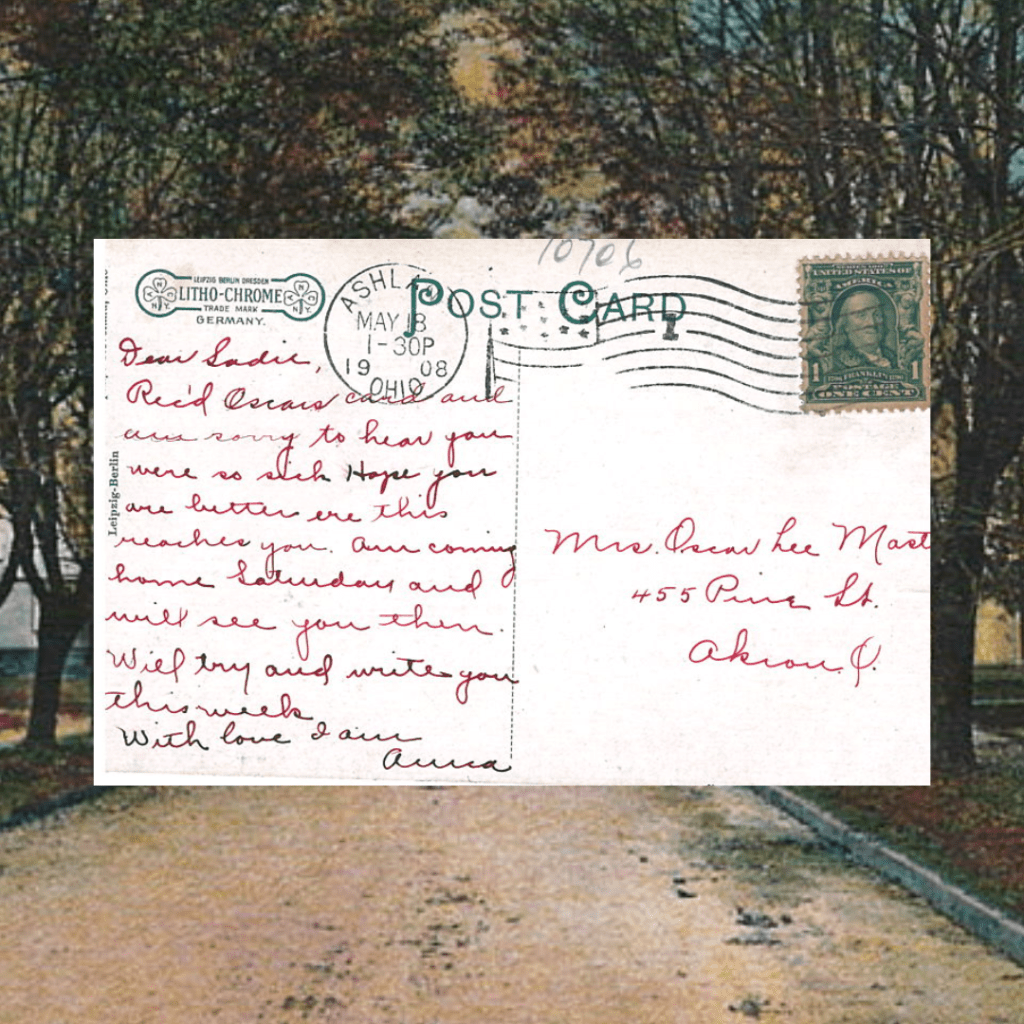 10706
LEIPZIG BERLIN DRESDEN
LITHO-CHROME
TRADE MARK
GERMANY.
ASHLAND
MAY 18
1-30P
19 08
OHIO
POST CARD
1
SERIES 1902
UNITED STATES OF
AMERICA
1 FRANKLIN 1
POSTAGE
ONE CENT
Leipzig-Berlin
Dear Sadie,
Rec'd Oscars card and
am sorry to hear you
were so sick Hope you
are better ere this
reaches you. Am coming
home Saturday and
will see you then.
Will try and write you
this week
With love I am
Anna
Mrs. Oscar Lee Mast
455 Pine St.
Akron. O.